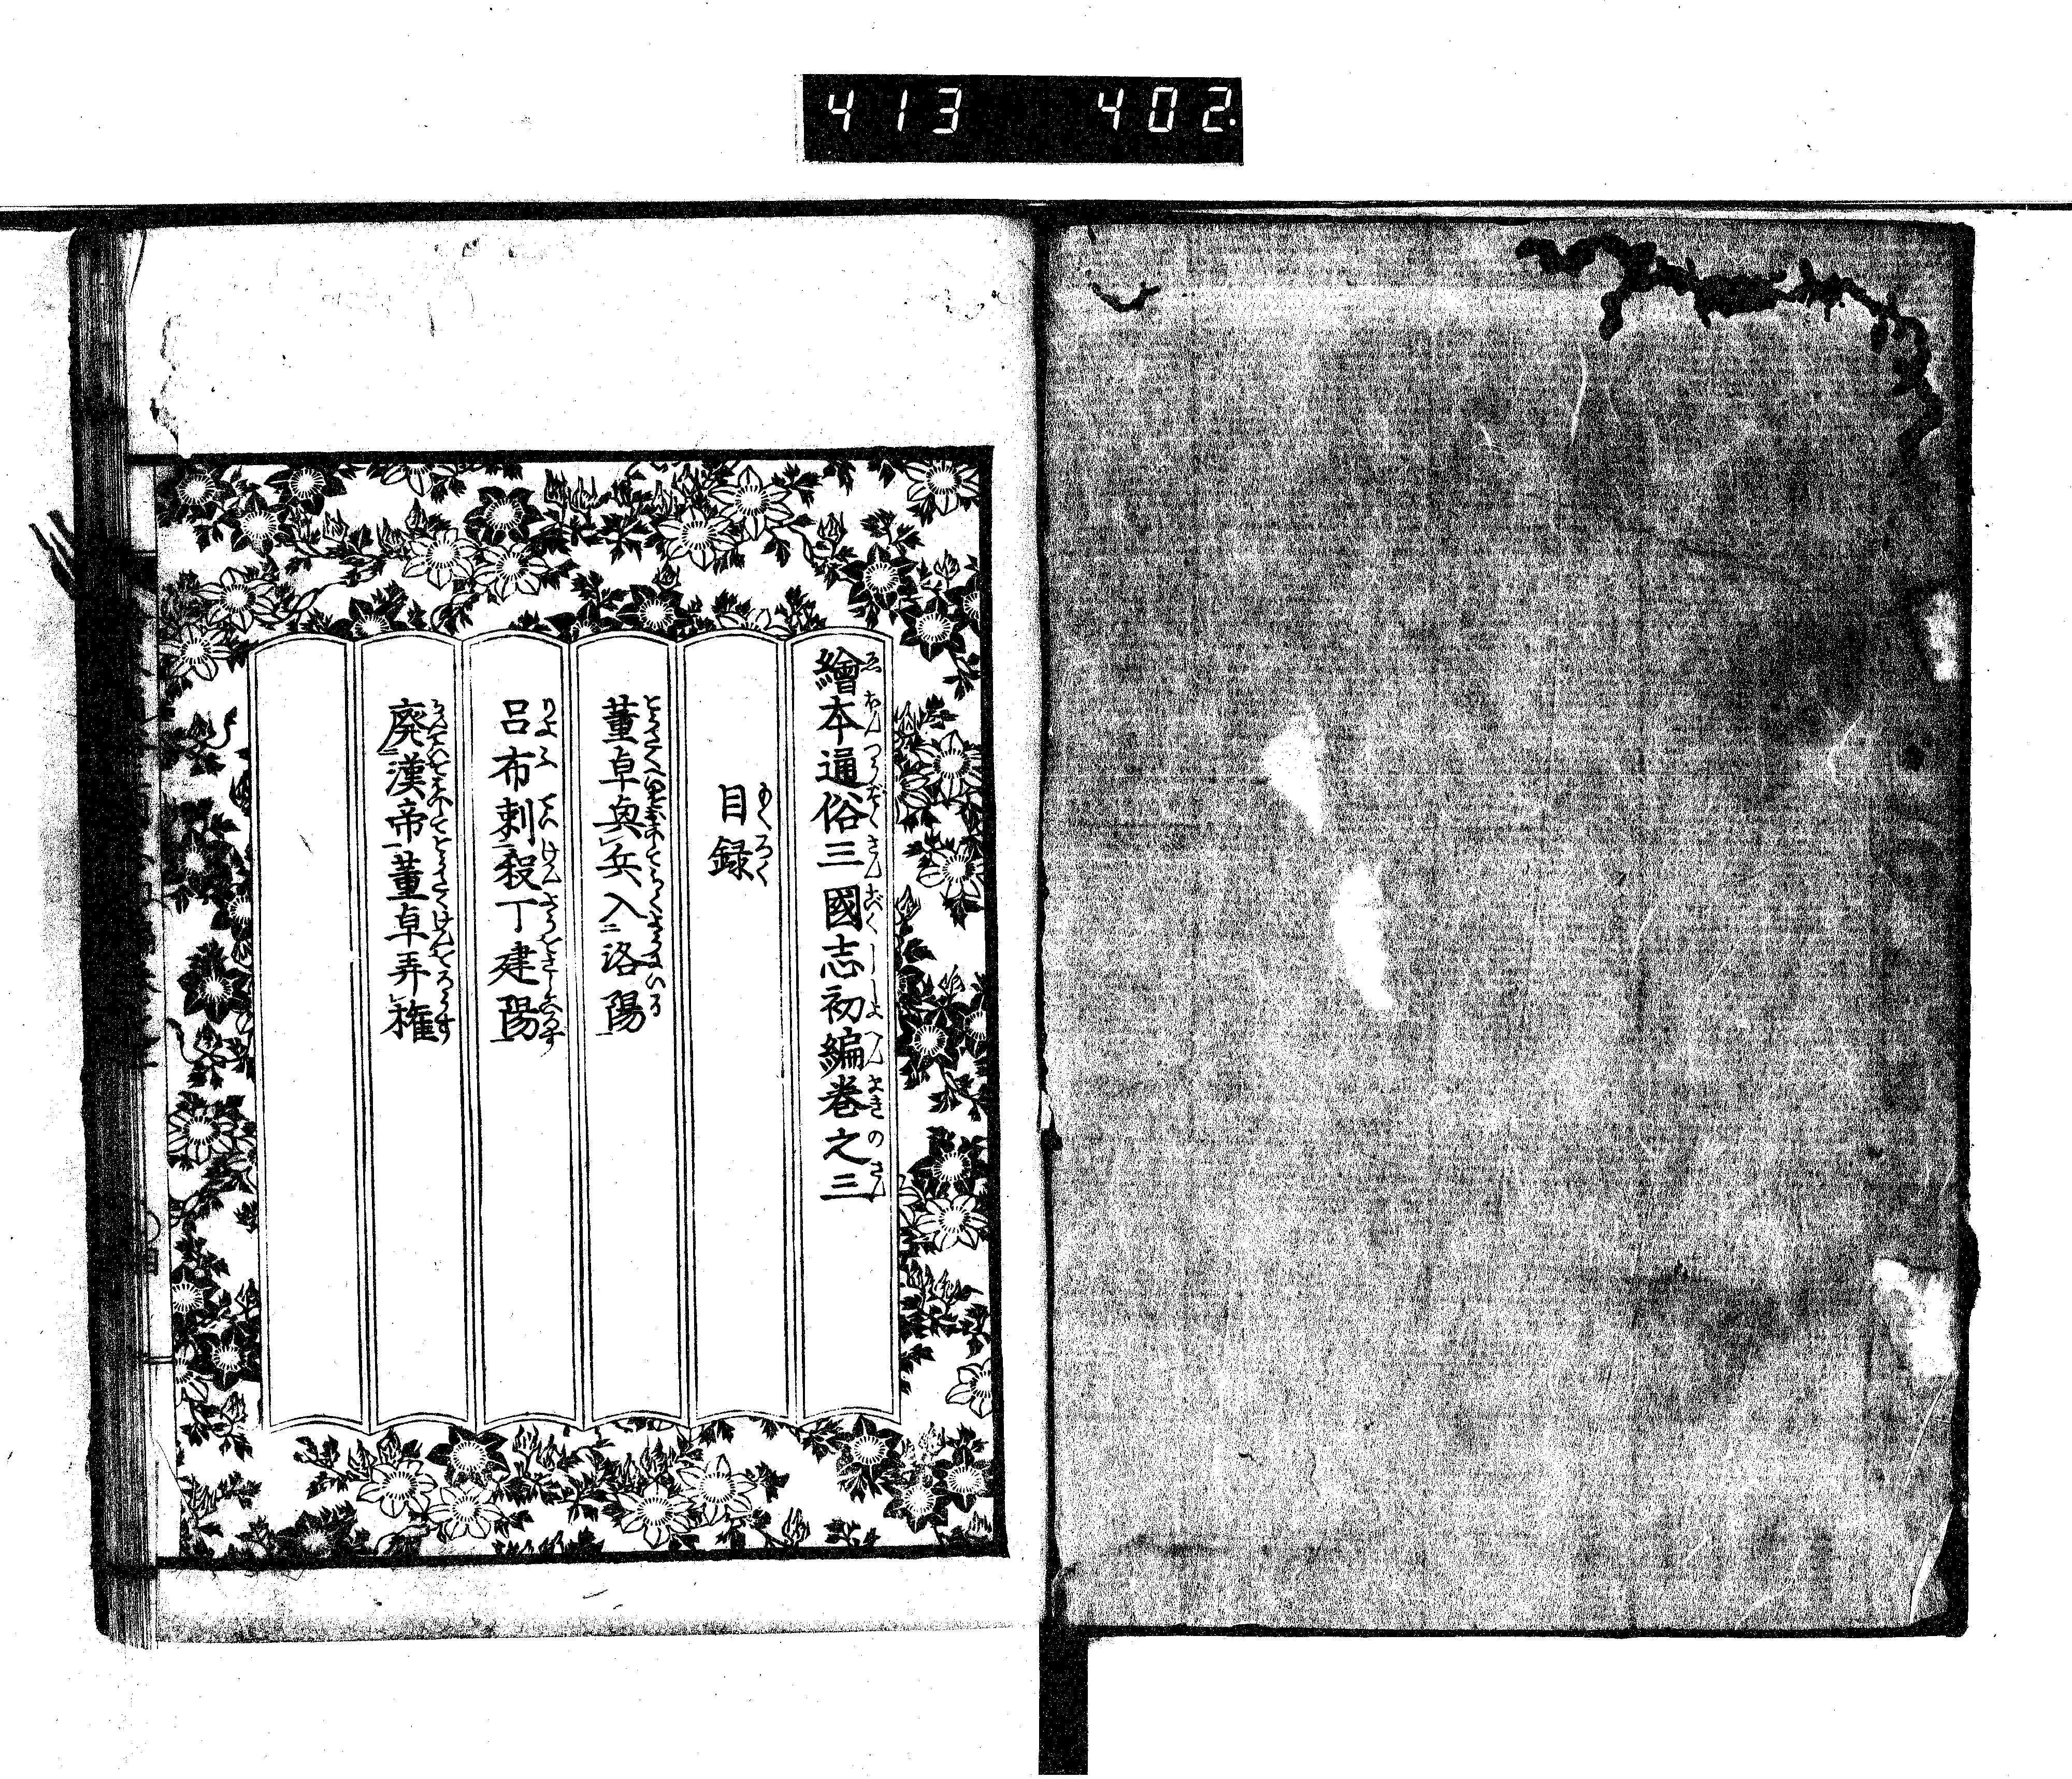 413 402.
繪本通俗三國志初編巻之三
目録
董卓興兵入洛陽
呂布刺殺丁建陽
廃漢帝董卓弄権